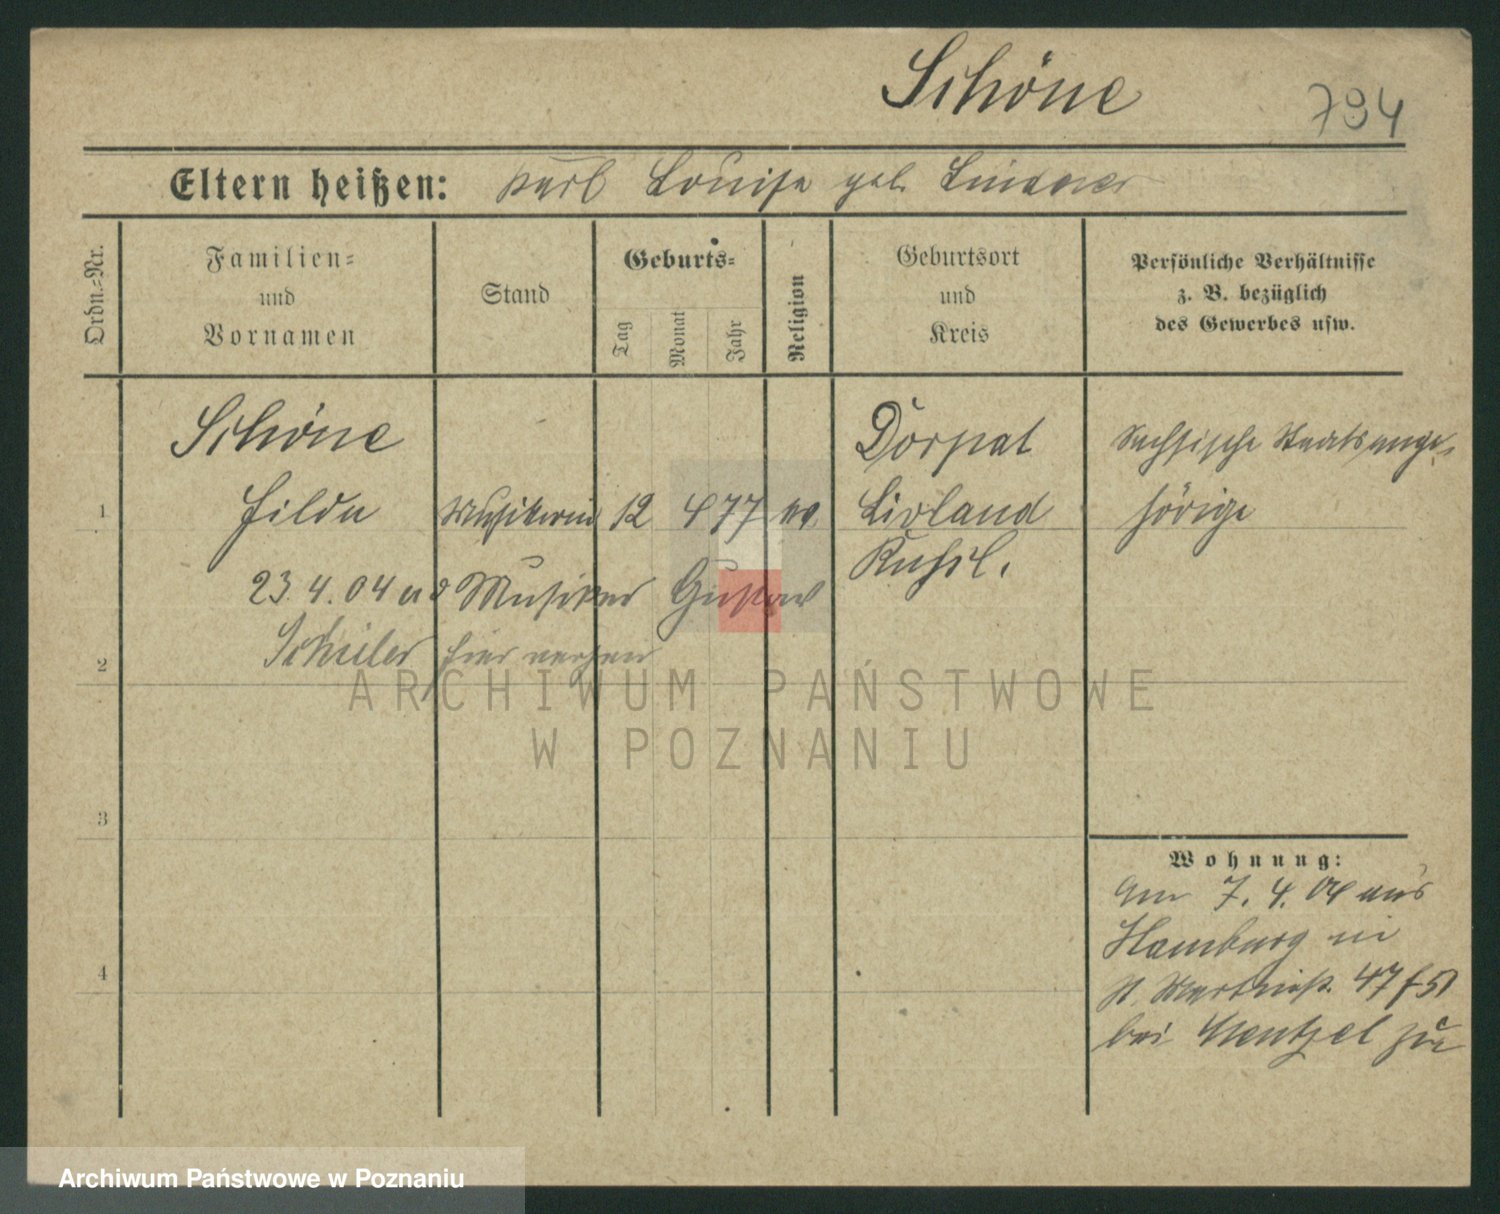 Schöne
794
Eltern heißen: Karl Louise geb. Lindner
Ordn.-Nr.
Familien-
und
Vornamen
Stand
Geburts-
Tag
Monat
Jahr
Religion
Geburtsort
und
Kreis
Persönliche Verhältnisse
z. B. bezüglich
des Gewerbes usw.
1
Schöne
Hilda
Musikerin
12 4 77
Dorpat
Livland
Rußl.
Sächsische Staatsange-
hörige
23 4. 04 Musiker Gustav
2
Schüler hier
3
4
Wohnung:
Am 7. 4. 04 aus
Hamburg in
St. Martinstr. 47 f 51
bei Wentzel zu
ARCHIWUM PAŃSTWOWE
W POZNANIU
Archiwum Państwowe w Poznaniu